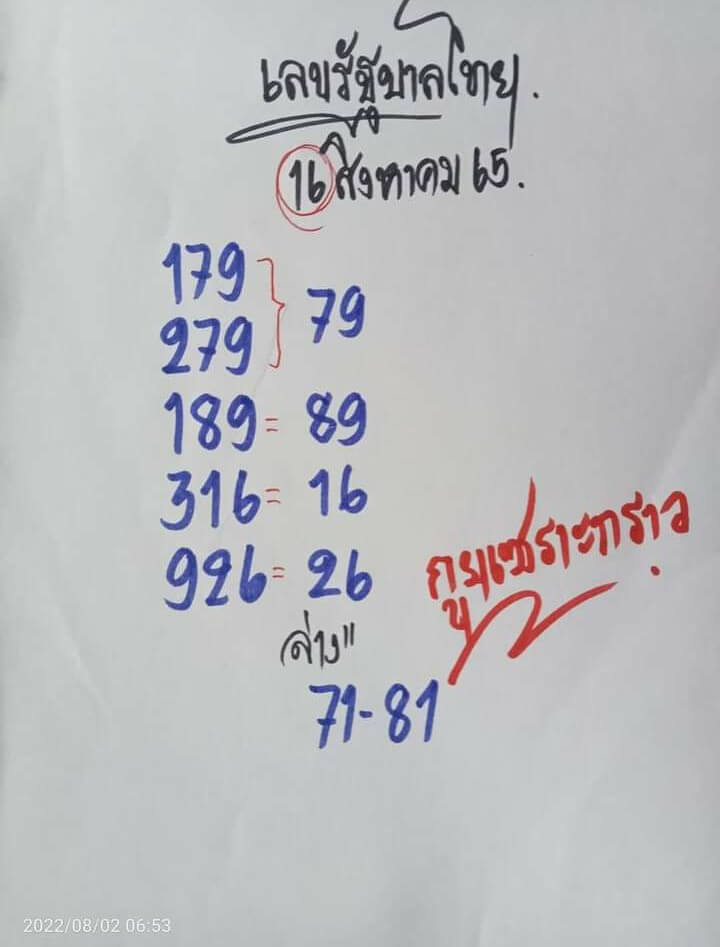 เลขรัฐบาลไทย.
16 สิงหาคม 65.
179
279 } 79
189 = 89
316 = 16
926 = 26
ล่าง"
71-81
2022/08/02 06:53